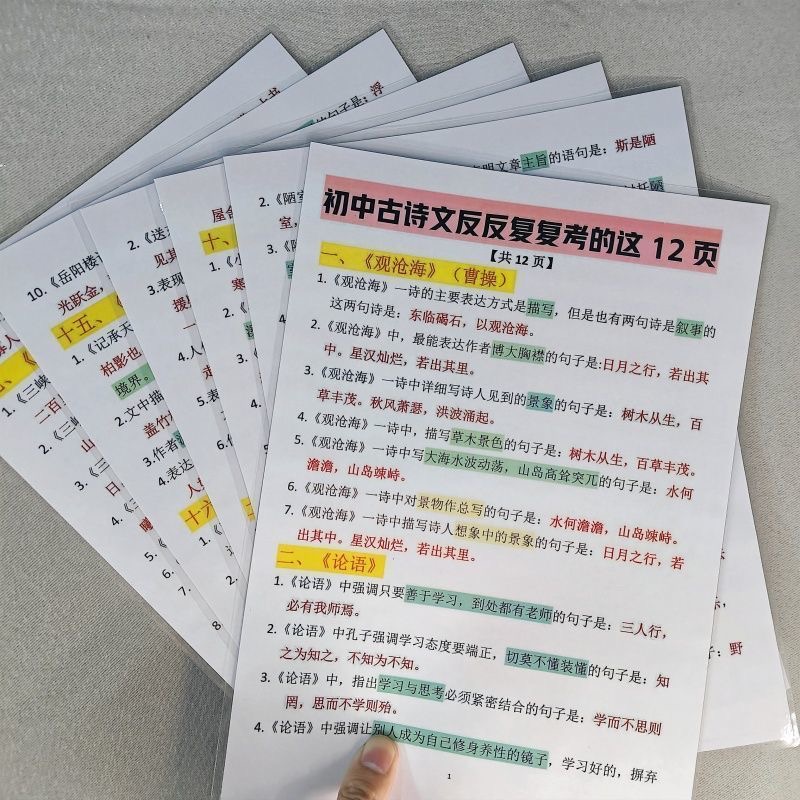 初中古诗文反反复复考的这 12 页
【共 12 页】
一、《观沧海》（曹操）
1.《观沧海》一诗的主要表达方式是描写，但是也有两句诗是叙事的
这两句诗是：东临碣石，以观沧海。
2.《观沧海》中，最能表达作者博大胸襟的句子是:日月之行，若出其
中。星汉灿烂，若出其里。
3.《观沧海》一诗中详细写诗人见到的景象的句子是：树木丛生，百
草丰茂。秋风萧瑟，洪波涌起。
4.《观沧海》一诗中，描写草木景色的句子是：树木丛生，百草丰茂。
5.《观沧海》一诗中写大海水波动荡，山岛高耸突兀的句子是：水何
澹澹，山岛竦峙。
6.《观沧海》一诗中对景物作总写的句子是：水何澹澹，山岛竦峙。
7.《观沧海》一诗中描写诗人想象中的景象的句子是：日月之行，若
出其中。星汉灿烂，若出其里。
二、《论语》
1.《论语》中强调只要善于学习，到处都有老师的句子是：三人行，
必有我师焉。
2.《论语》中孔子强调学习态度要端正，切莫不懂装懂的句子是：知
之为知之，不知为不知。
3.《论语》中，指出学习与思考必须紧密结合的句子是：学而不思则
罔，思而不学则殆。
4.《论语》中强调让别人成为自己修身养性的镜子，学习好的，摒弃
1
明文章主旨的语句是：斯是陋
句子是：浮
2.《陋室
室，
3.《陋
屋舍
十、
1.《小
寒
2.《
4.
5.
6.
2.《送
见其
3.表现
援
4.人
5.表
6.
10.《岳阳楼
光跃金，
十五、《
1.《记承天
柏影也
境界。
2.文中描
盖竹
3.作者
4.表达
人
十六
1.《
2.
1.《三峡
二百
2.《三
山
3.《
日
4.《
5.
6.
7.
8
野